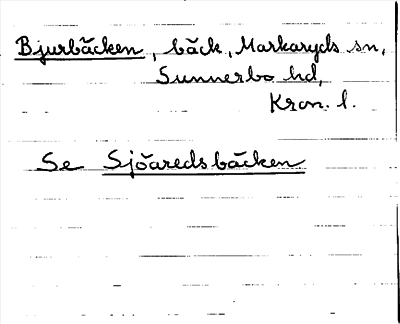 Bjurbäcken, bäck, Markaryds sn,
Sunnerbo hd,
Kron. l.
Se Sjöaredsbäcken